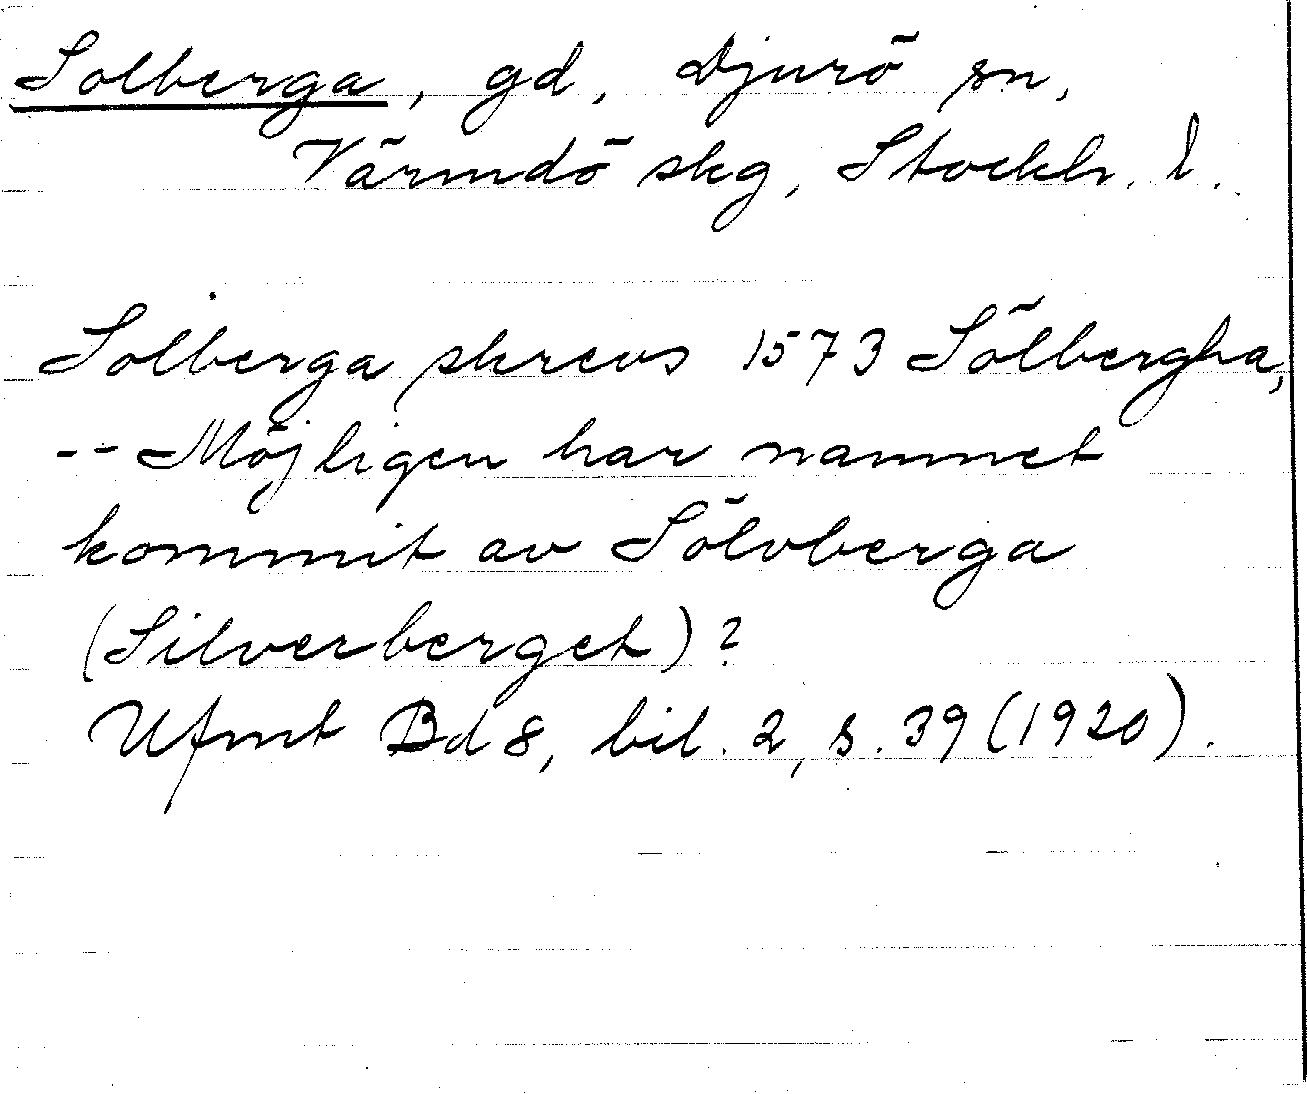 Solberga, gd, Djurö sn,
Värmdö skg, Stockh. l.
Solberga skrevs 1573 Sölbergha,
-- Möjligen har namnet
kommit av Sölvberga
(Silverberget)?
Ufmt Bd 8, bil. 2, s. 39 (1920).